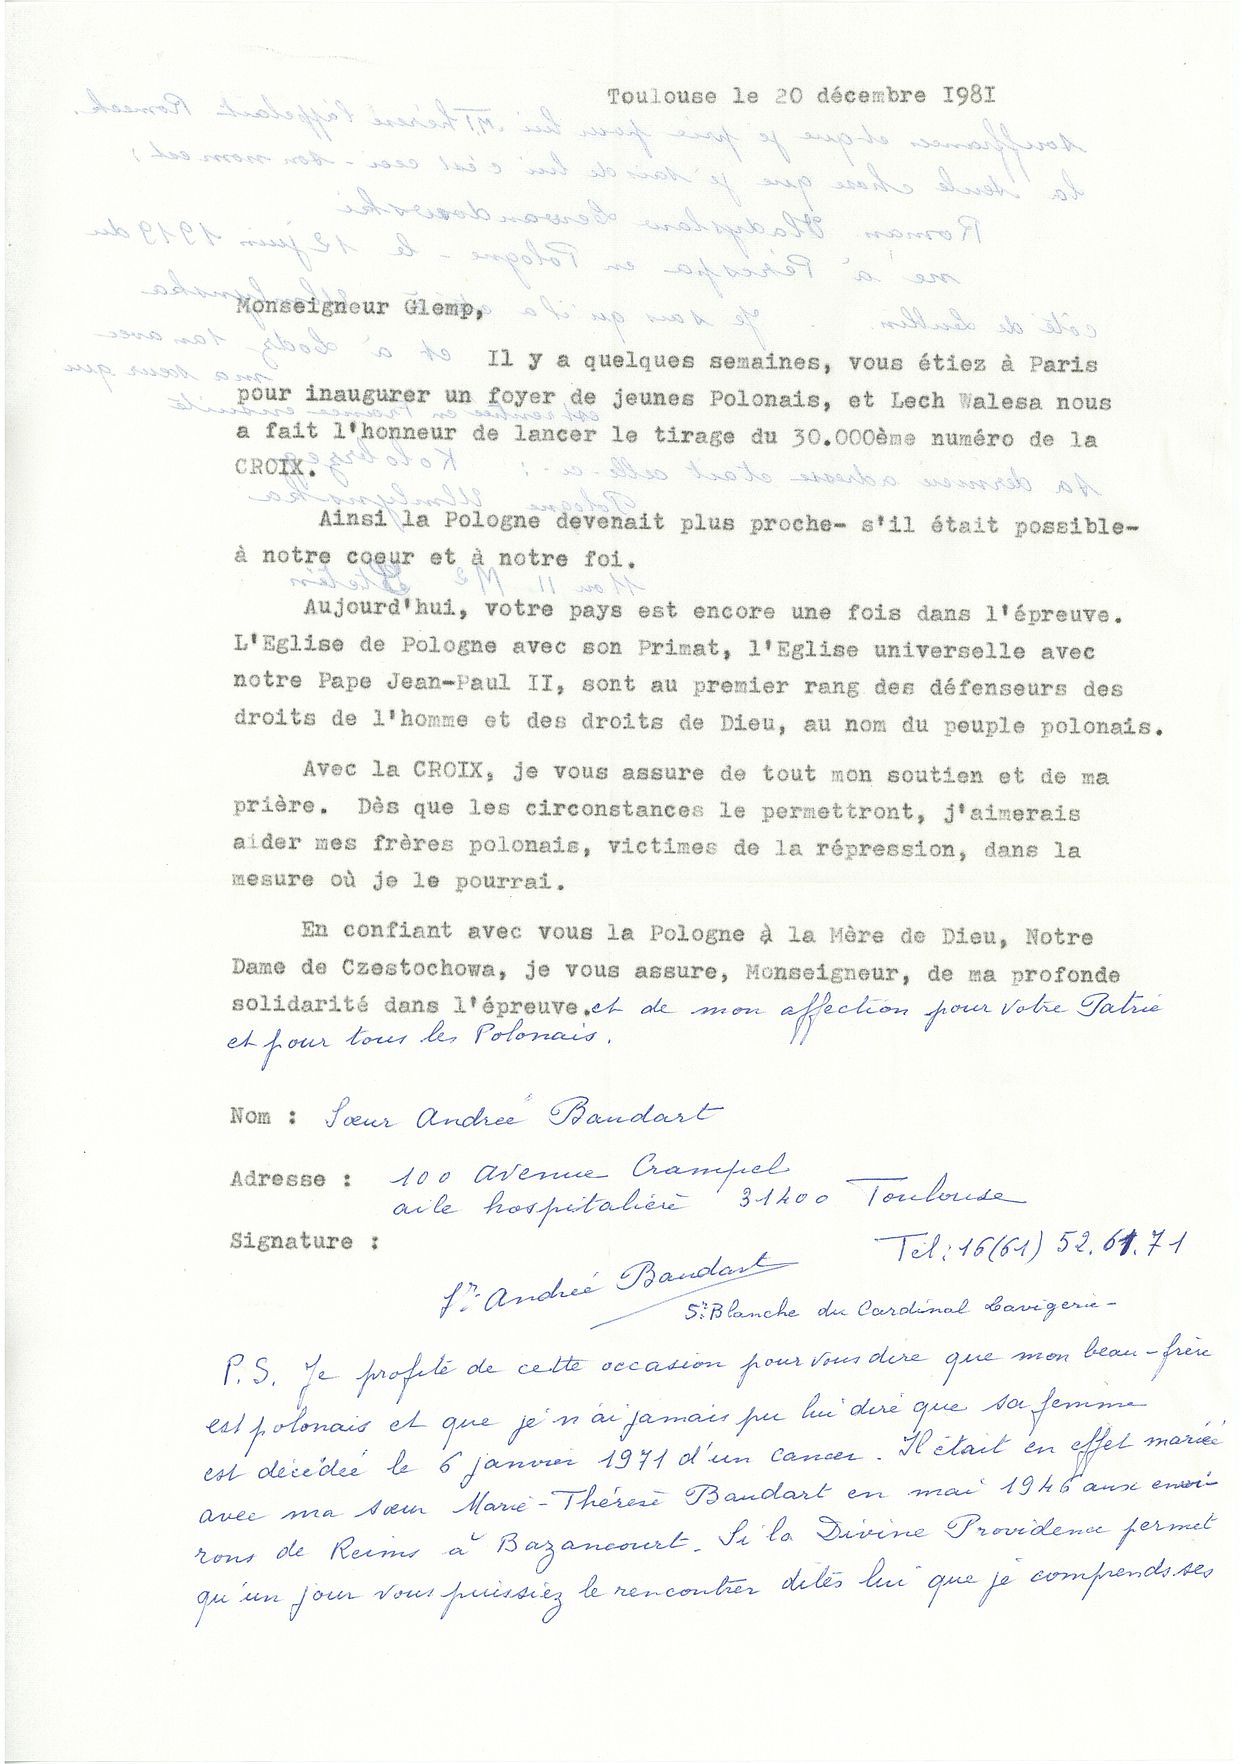 Toulouse le 20 décembre I98I
Monseigneur Glemp,
Il y a quelques semaines, vous étiez à Paris
pour inaugurer un foyer de jeunes Polonais, et Lech Walesa nous
a fait l'honneur de lancer le tirage du 30.000ème numéro de la
CROIX.
Ainsi la Pologne devenait plus proche- s'il était possible-
à notre coeur et à notre foi.
Aujourd'hui, votre pays est encore une fois dans l'épreuve.
L'Eglise de Pologne avec son Primat, l'Eglise universelle avec
notre Pape Jean-Paul II, sont au premier rang des défenseurs des
droits de l'homme et des droits de Dieu, au nom du peuple polonais.
Avec la CROIX, je vous assure de tout mon soutien et de ma
prière. Dès que les circonstances le permettront, j'aimerais
aider mes frères polonais, victimes de la répression, dans la
mesure où je le pourrai.
En confiant avec vous la Pologne à la Mère de Dieu, Notre
Dame de Czestochowa, je vous assure, Monseigneur, de ma profonde
solidarité dans l'épreuve.et de mon affection pour votre Patrie
et pour tous les Polonais.
Nom : Sœur Andrée Baudart
Adresse : 100 avenue Crampel
aile hospitalière 31400 Toulouse
Signature :
Tél : 16(61) 52.61.71
Sr. Andrée Baudart
Sr. Blanche du Cardinal Lavigerie-
P.S. Je profite de cette occasion pour vous dire que mon beau-frère
est polonais et que je n'ai jamais pu lui dire que sa femme
est décédée le 6 janvier 1971 d'un cancer. Il était en effet mariée
avec ma sœur Marie-Thérèse Baudart en mai 1946 aux envi-
rons de Reims à Bazancourt. Si la Divine Providence permet
qu'un jour vous puissiez le rencontrer dites lui que je comprends ses
souffrances et que je prie pour lui M.Thérèse l'appelait Romech.
la seule chose que je sais de lui c'est ceci - son nom est :
Roman Vladyslaw Lewandowski
né à Pérespa en Pologne - le 12 juin 1919 du
côté de Lublin. Je sais qu'il a
et à Lodz avec
ma sœur qui
est rentrée en France ensuite
sa dernière adresse était celle-ci : Kolobrzeg
Pologne
11 ou 11 M2 Stetin